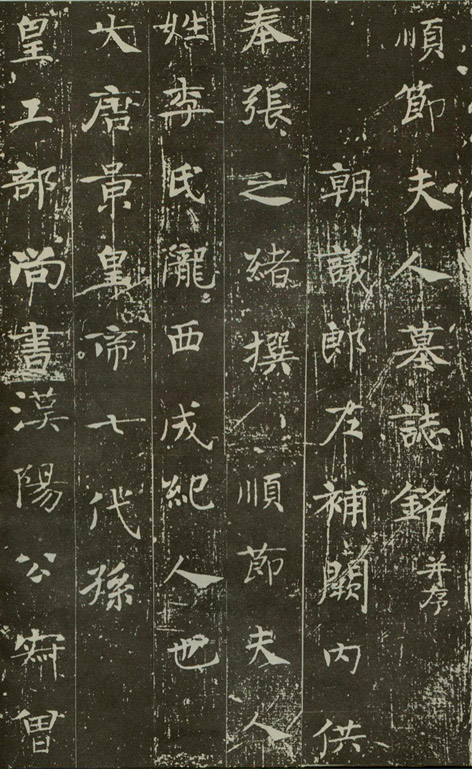 順節夫人墓誌銘并序
朝議郎左補闕內供
奉張之緒撰 順節夫人
姓李氏隴西成紀人也
大唐景皇帝七代孫
皇工部尚書漢陽公 曾